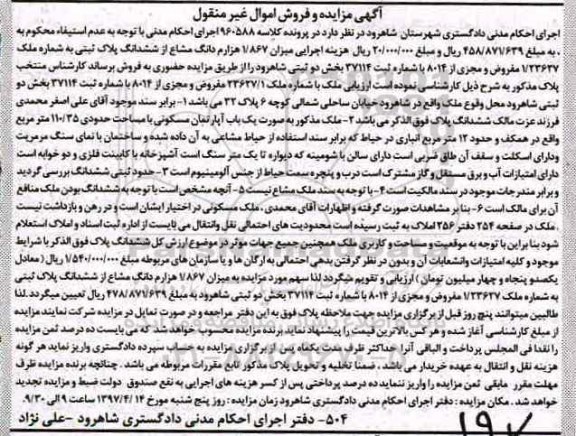 آگهی مزایده و فروش اموال غیر منقول
اجرای احکام مدنی دادگستری شهرستان شاهرود در نظر دارد در پرونده کلاسه ۹۶۰۵۸۸ اجرای احکام مدنی با توجه به عدم استیفاء محکوم به
به مبلغ ۴۵۸/۸۷۱/۶۳۹ ریال و مبلغ ۲۰/۰۰۰/۰۰۰ ریال هزینه اجرایی میزان ۱/۸۶۷ هزارم دانگ مشاع از ششدانگ پلاک ثبتی به شماره ملک
۱/۲۳۶۳۷ مفروض و مجزی از ۸۰۱۴ با شماره ثبت ۳۷۱۱۴ بخش دو ثبتی شاهرود را از طریق مزایده حضوری به فروش برساند کارشناس منتخب
پلاک مذکور به شرح ذیل کارشناسی نموده است ارزیابی ملک با شماره ملک ۲۳۶۲۷/۱ مفروض و مجزی از ۸۰۱۴ با شماره ثبت ۳۷۱۱۴ بخش دو
ثبتی شاهرود محل وقوع ملک واقع در شاهرود خیابان ساحلی شمالی کوچه ۶ پلاک ۳۲ می باشد ۱- برابر سند موجود آقای علی اصغر محمدی
فرزند عزت مالک ششدانگ پلاک فوق الذکر می باشد ۲- ملک مذکور به صورت یک باب آپارتمان مسکونی با مساحت حدودی ۱۱۰/۳۵ متر مربع
واقع در همکف و حدود ۱۲ متر مربع انباری در حیاط که برابر سند استفاده از حیاط مشاعی به آن داده شده و ساختمان با نمای سنگ مرمریت
ودارای اسکلت و سقف آن طاق ضربی است دارای سالن با شومینه که دیواره تا یک متر سنگ است آشپزخانه با کابینت فلزی و دو خوابه است
دارای امتیازات آب و برق مستقل و گاز مشترک است درب و پنجره سمت حیاط از جنس آلومینیوم است ۳- حدود ثبتی ششدانگ بررسی گردید
و برابر مندرجات موجود در سند مالکیت است ۴- با توجه به سند ملک مشاع نیست ۵- آنچه مشخص است با توجه به ششدانگ بودن ملک منافع
آن برای مالک است ۶- بنا بر مشاهدات صورت گرفته و اظهارات آقای محمدی، ملک مسکونی در اختیار ایشان است و در رهن و بازداشت نیست
، ملک در صفحه ۲۵۴ دفتر ۲۵۶ املاک به ثبت رسیده است محدودیت های احتمالی نقل وانتقال می بایست از اداره ثبت اسناد و املاک استعلام
شود بنا براین با توجه به موقعیت و مساحت و کاربری ملک همچنین جمیع جهات موثر در موضوع ارزش کل ششدانگ پلاک فوق الذکر با شرایط
موجود و کلیه امتیازات وانشعابات آن و بدون در نظر گرفتن بدهی احتمالی به ارگان ها و یا سازمان های مربوطه مبلغ ۱/۵۴۰/۰۰۰/۰۰۰ ریال (معادل
یکصدو پنجاه و چهار میلیون تومان) ارزیابی و تقویم شیگردد لذا سهم مورد مزایده به میزان ۱/۸۶۷ هزارم دانگ مشاع از ششدانگ پلاک ثبتی
به شماره ملک ۱/۲۳۶۲۷ مفروض و مجزی از ۸۰۱۴ با شماره ثبت ۳۷۱۱۴ بخش دو ثبتی شاهرود به مبلغ ۴۷۸/۸۷۱/۶۳۹ ریال تعیین میگردد. لذا
طالبین میتوانند پنج روز قبل از برگزاری مزایده جهت ملاحظه پلاک فوق به این دفتر مراجعه و در صورت تمایل در مزایده شرکت نمایند مزایده
از مبلغ کارشناسی آغاز شده و هر کس بالاترین قیمت را پیشنهاد نماید برنده مزایده محسوب خواهد شد که می بایست ده درصد ثمن مزایده
را نقدا فی المجلس پرداخت و الباقی آنرا حداکثر ظرف مدت یکماه پس از برگزاری مزایده به حساب سپرده دادگستری واریز نماید هر گونه
هزینه نقل و انتقال به عهده خریدار می باشد. ضمنا تخلیه و تحویل پلاک مذکور تابع مقررات مربوطه می باشد. چنانچه برنده مزایده ظرف
مهلت مقرر مابقی ثمن مزایده را واریز ننماید ده درصد پرداختی پس از کسر هزینه های اجرایی به نفع صندوق دولت ضبط و مزایده تجدید
خواهد شد. مکان مزایده : دفتر اجرای احکام مدنی دادگستری شاهرود زمان مزایده : روز پنج شنبه مورخ ۱۳۹۷/۴/۱۴ ساعت ۹ الی ۹/۳۰.
۵۰۴- دفتر اجرای احکام مدنی دادگستری شاهرود -علی نژاد